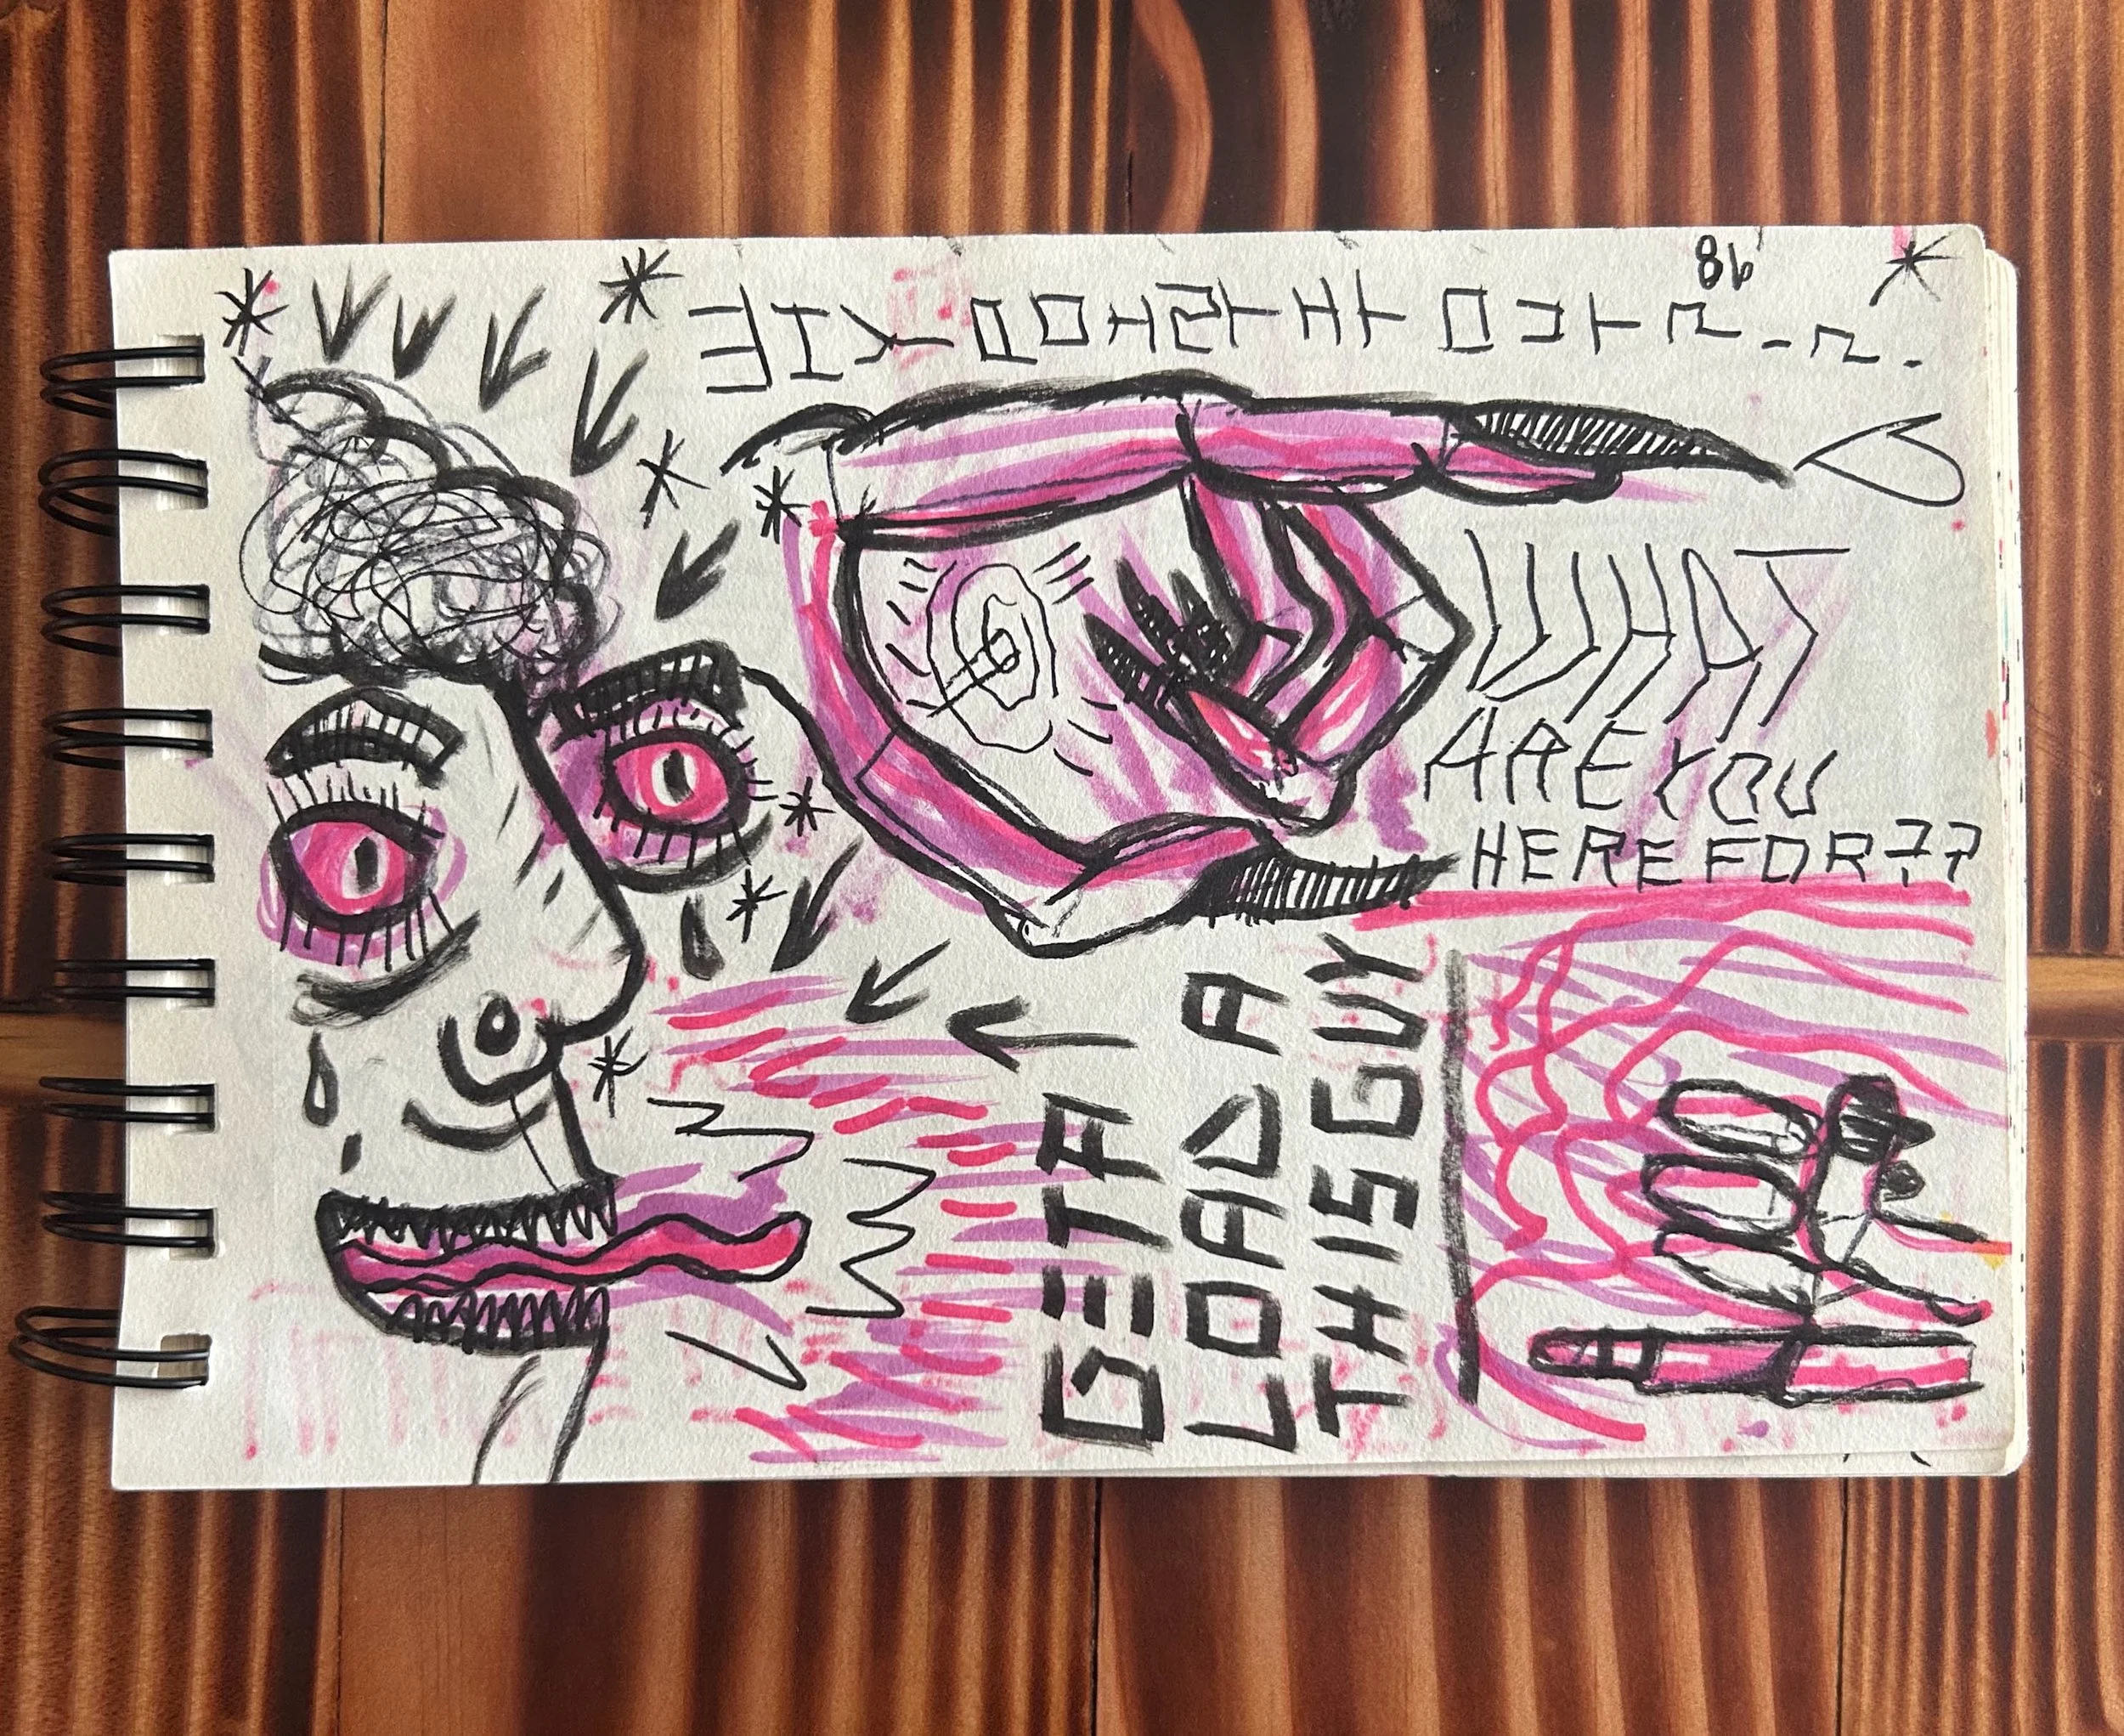 86
WHAT
ARE YOU
HERE FOR??
GET A
LOAD A
THIS GUY